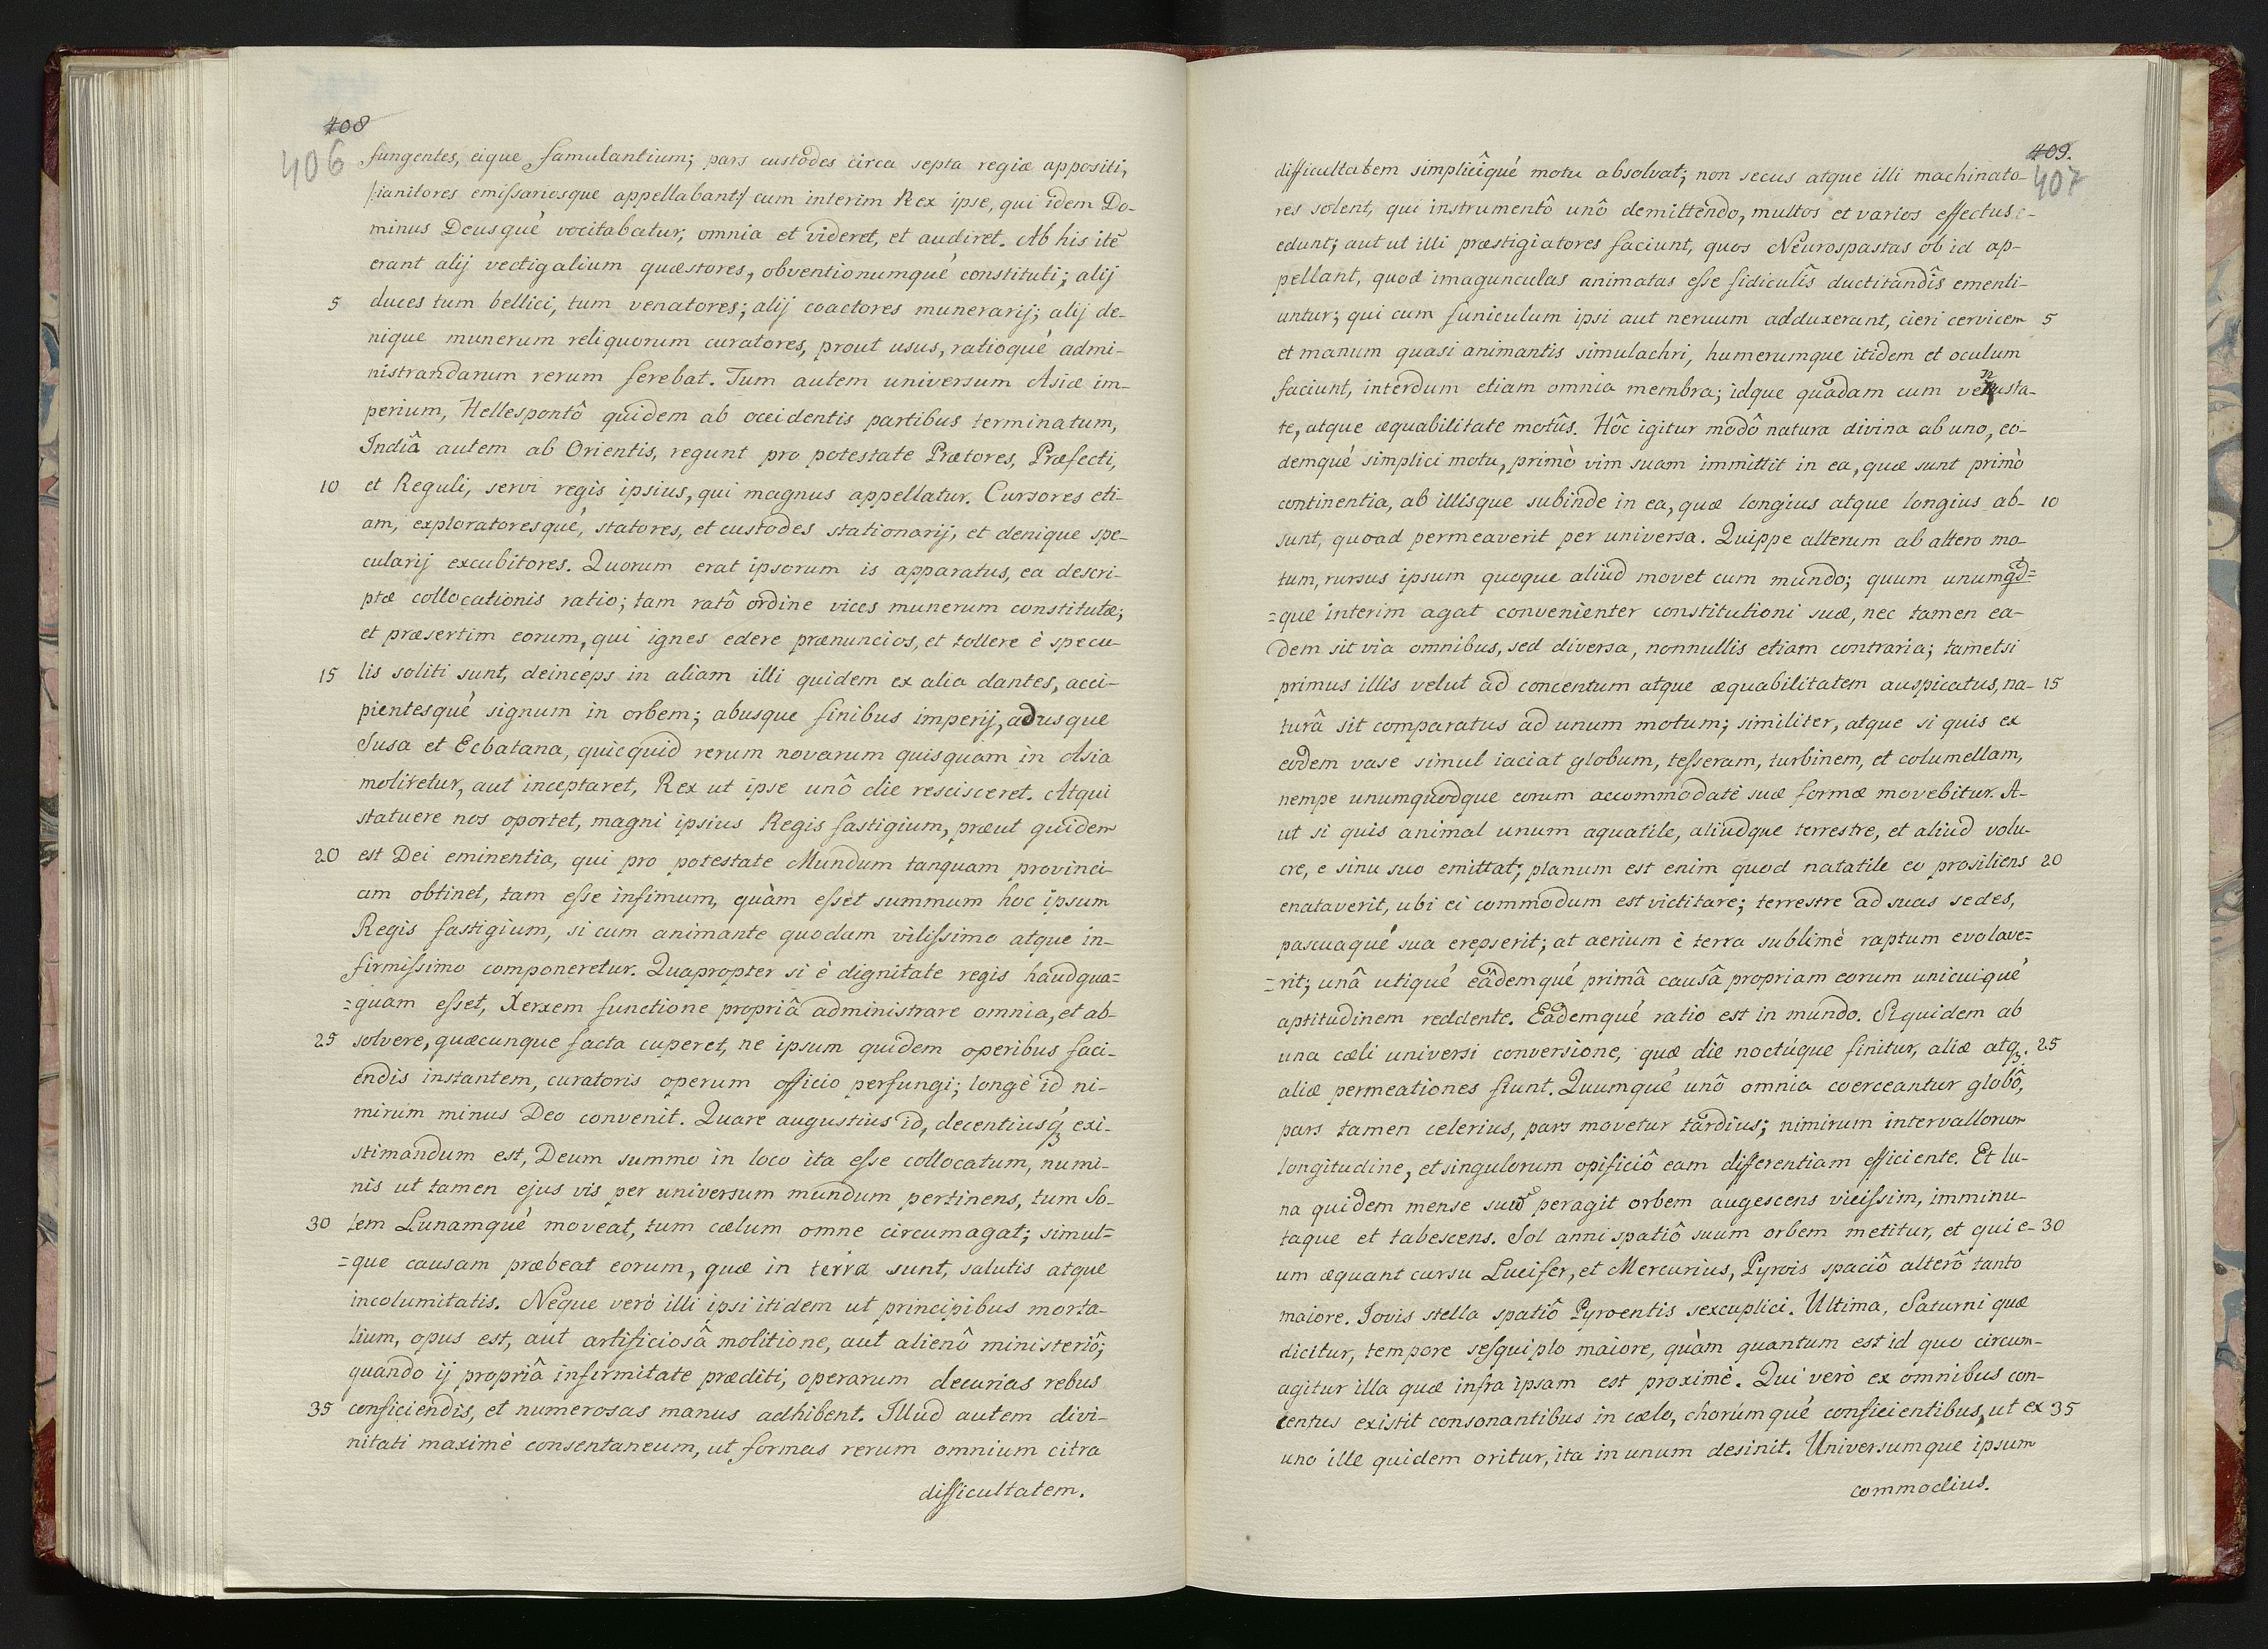 408
406
fungentes, eique famulantium; pars custodes circa septa regiæ appositi,
/:ianitores emissariosque appellabant:/ cum interim Rex ipse, qui idem Do-
minus Deusqué vocitabatur, omnia et videret, et audiret. Ab his itẽ
erant alij vectigalium quæstores, obventionumqué constituti; alij
5 duces tum bellici, tum venatores; alij coactores munerarij; alij de-
nique munerum reliquorum curatores, prout usus, ratioqué admi-
nistrandarum rerum ferebat. Tum autem universum Asiæ im-
perium, Hellespontô quidem ab occidentis partibus terminatum,
Indiâ autem ab Orientis, regunt pro potestate Prætores, Præfecti,
10 et Reguli, servi regis ipsius, qui magnus appellatur. Cursores eti-
am, exploratoresqué, statores, et custodes stationarij, et denique spe-
cularij excubitores. Quorum erat ipsorum is apparatus, ea descri-
ptæ collocationis ratio; tam ratô ordine vices munerum constitutæ;
et præsertim eorum, qui ignes edere prænuncios, et tollere è specu-
15 lis soliti sunt, deinceps in aliam illi quidem ex alia dantes, acci-
pientesqué signum in orbem; abusque finibus imperij, adusque
Susa et Ecbatana, quicquid rerum novarum quisquam in Asia
moliretur, aut inceptaret, Rex ut ipse unô die rescisceret. Atqui
statuere nos oportet, magni ipsius Regis fastigium, præut quidem
20 est Dei eminentia, qui pro potestate Mundum tanquam provinci-
am obtinet, tam esse infimum, quàm esset summum hoc ipsum
Regis fastigium, si cum animante quodam vilissimo atque in-
firmissimo componeretur. Quapropter si è dignitate regis haudqua=
=quam esset, Xerxem functione propriâ administrare omnia, et ab-
25 solvere, quæcunque facta cuperet, ne ipsum quidem operibus faci-
endis instantem, curatoris operum officio perfungi; longè id ni-
mirum minus Deo convenit. Quare augustius id, decentiusqꝫ exi-
stimandum est, Deum summo in loco ita esse collocatum, numi-
nis ut tamen ejus vis per universum mundum pertinens, tum So-
30 lem Lunamqué moveat, tum cælum omne circumagat; simul=
=que causam præbeat eorum, quæ in terra sunt, salutis atque
incolumitatis. Neque verò illi ipsi itidem ut principibus morta-
lium, opus est, aut artificiosâ molitione, aut alienô ministeriô;
quando ij propriâ infirmitate præditi, operarum decurias rebus
35 conficiendis, et numerosas manus adhibent. Illud autem divi-
nitati maximè consentaneum, ut formas rerum omnium citra
difficultatem.
409.
407
difficultatem simplicîqué motu absolvat; non secus atque illi machinato-
res solent, qui instrumentô unô demittendo, multos et varios effectus
edunt; aut ut illi præstigiatores faciunt, quos Neurospastas ob id ap-
pellant, quod imagunculas animatas esse fidiculîs ductitandîs ementi-
untur; qui cum funiculum ipsi aut neruum adduxerunt, cieri cervicem 5
et manum quasi animantis simulachri, humerumque itidem et oculum
faciunt, interdum etiam omnia membra; idque quadam cum venusta-
te, atque æquabilitate motûs. Hôc igitur modô natura divina ab uno, eo-
demqué simplici motu, primò vim suam immittit in ea, quæ sunt primò
continentia, ab illisque subinde in ea, quæ longius atque longius ab- 10
sunt, quoad permeaverit per universa. Quippe alterum ab altero mo-
tum, rursus ipsum quoque aliud movet cum mundo; quum unumqd=
=que interim agat convenienter constitutioni suæ, nec tamen ea-
dem sit via omnibus, sed diversa, nonnullis etiam contraria; tametsi
primus illis velut ad concentum atque æquabilitatem auspicatus, na- 15
turâ sit comparatus ad unum motum; similiter, atque si quis ex
eodem vase simul iaciat globum, tesseram, turbinem, et columellam,
nempe unumquodque eorum accommodatè suæ formæ movebitur. A-
ut si quis animal unum aquatile, aliudque terrestre, et aliud volu-
cre, e sinu suo emittat; planum est enim quod natatile eo prosiliens 20
enataverit, ubi ei commodum est victitare; terrestre ad suas sedes,
pascuaqué sua erepserit; at aerium è terra sublimè raptum evolave=
=rit; unâ utiqué eâdemqué primâ causâ propriam eorum unicuiqué
aptitudinem reddente. Eademqué ratio est in mundo. Siquidem ab
una cæli universi conversione, quæ die noctúque finitur, aliæ atqꝫ. 25
aliæ permeationes fiunt. Quumqué unô omnia coerceantur globô,
pars tamen celerius, pars movetur tardius; nimirum intervallorum
longitudine, et singulorum opificiô eam differentiam efficiente. Et lu-
na quidem mense suo peragit orbem augescens vicissim, imminu-
taque et tabescens. Sol anni spatiô suum orbem metitur, et qui e- 30
um æquant cursu Lucifer, et Mercurius, Pyrois spaciô alterô tanto
maiore. Iovis stella spatiô Pyroentis sexcuplici. Ultima, Saturni quæ
dicitur, tempore sesquiplo maiore, quàm quantum est id quo circum-
agitur illa quæ infra ipsam est proximè. Qui verò ex omnibus con-
centus existit consonantibus in cælo, chorúmqué conficientibus, ut ex 35
uno ille quidem oritur, ita in unum desinit. Universumque ipsum
commodius.